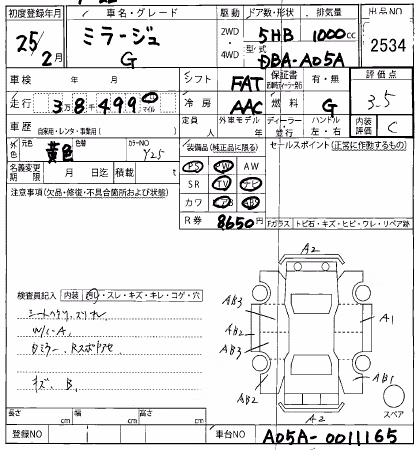 初度登録年月 車名・グレード 駆動 ドア数・形状 排気量 出品NO
25/2月 ミラージュ G 2WD 4WD 5HB 1000cc 2534
型式 DBA-A05A
車検 年 月 シフト FAT 保証書 有・無 評価点
走行 3万8千499 km マイル 冷房 AAC 燃料 G 3.5
車歴 自家用・レンタ・事業用( ) 定員 人 外車モデル ディーラー・並行 ハンドル 左・右 内装評価 C
外色 元色 黄色 色替 カラーNO Y25 装備品(純正品に限る) セールスポイント(正常に作動するもの)
名義変更期限 月 日迄 積載 t PS PW AW
注意事項(欠品・修復・不具合箇所および状態) SR TV ナビ
カワ エアB ABS
R券 8650円 Fガラス トビ石・キズ・ヒビ・ワレ・リペア跡
A2
検査員記入 内装 汚れ・スレ・キズ・キレ・コゲ・穴
AB3 A1
W/C-A AB2
AB3
キズ、B AB2 AB1
A2 スペア
長さ cm 幅 cm 高さ cm
登録NO 車台NO A05A-0011165